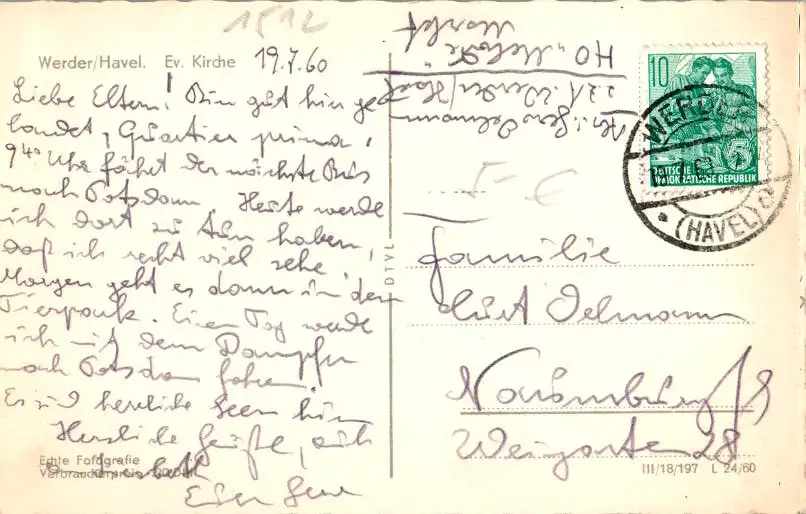 1512
Werder/Havel. Ev. Kirche 19.7.60
Liebe Eltern! Bin gut hier ge
landet, Quartier prima.
9⁴⁰ Uhr fährt der nächste Bus
nach Potsdam. Heute werde
ich dort zu tun haben,
daß ich recht viel sehe.
Morgen geht es dann in den
Tierpark. Einen Tag werde
ich mit dem Dampfer
nach Potsdam fahren.
Es sind herrliche Seen hier
Herzliche Grüße, auch
Echte Fotografie
Verbraucherpreis
Euer
DTVL
Oelmann
Werder/Havel
HO
Markt
5-€
10
5
DEUTSCHE
DEMOKRATISCHE REPUBLIK
WERDER
(HAVEL)
Familie
Kurt Oelmann
Naumburg/S
Weingarten 28
III/18/197 L 24/60